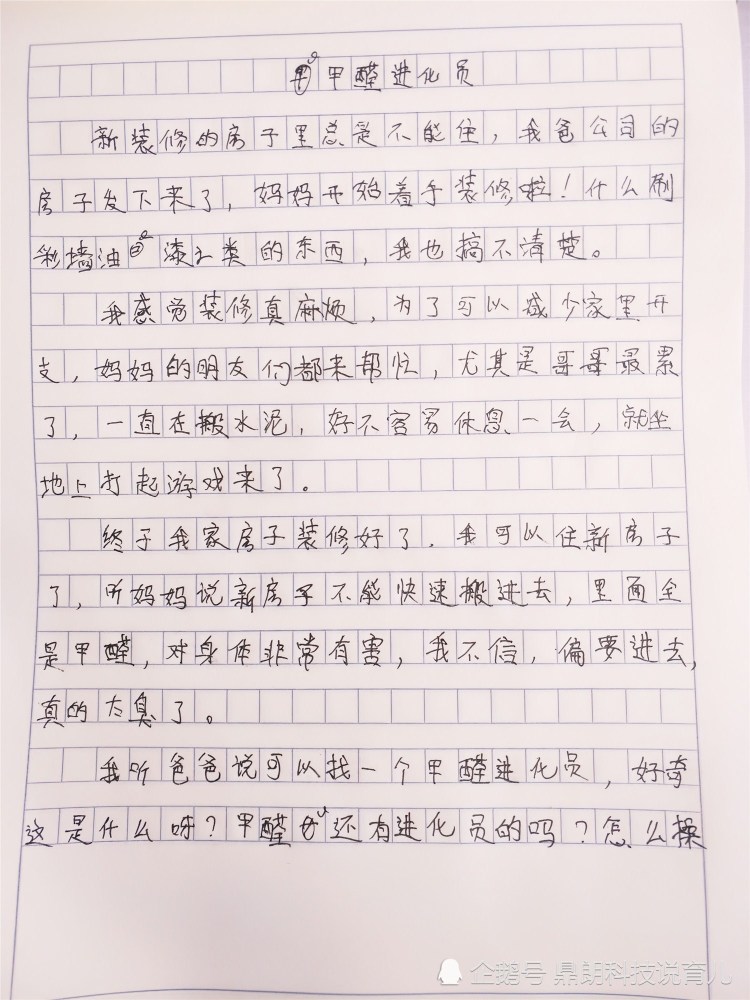 甲醛进化员
新装修的房子里总是不能住，我爸公司的
房子发下来了，妈妈开始着手装修啦！什么刷
彩墙油漆之类的东西，我也搞不清楚。
我感觉装修真麻烦，为了可以减少家里开
支，妈妈的朋友们都来帮忙，尤其是哥哥最累
了，一直在搬水泥，好不容易休息一会，就坐
地上打起游戏来了。
终于我家房子装修好了．我可以住新房子
了，听妈妈说新房子不能快速搬进去，里面全
是甲醛，对身体非常有害，我不信，偏要进去，
真的太臭了。
我听爸爸说可以找一个甲醛进化员，好奇
这是什么呀？甲醛还有进化员的吗？怎么操
企鹅号 鼎朗科技说育儿